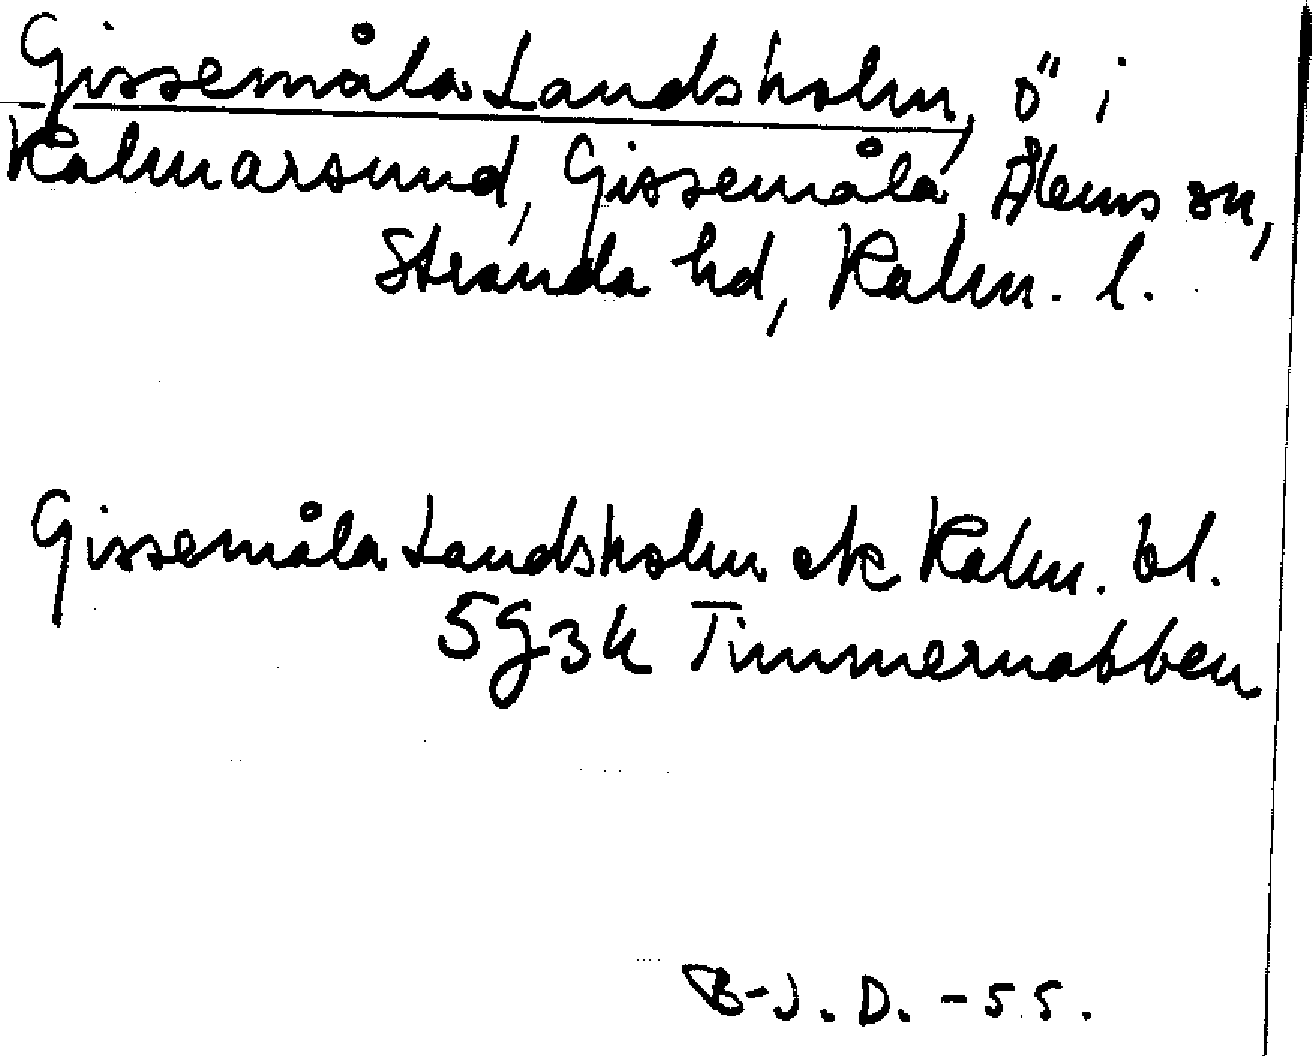 Gissemåla Landsholm, ö i
Kalmarsund, Gissemåla, Ålems sn,
Stranda hd, Kalm. l.
Gissemåla Landsholm ek Kalm. bl.
5g3h Timmernabben
B-J. D. -55.